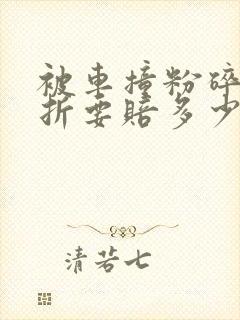 被車撞粉碎
折要賠多少
清若七